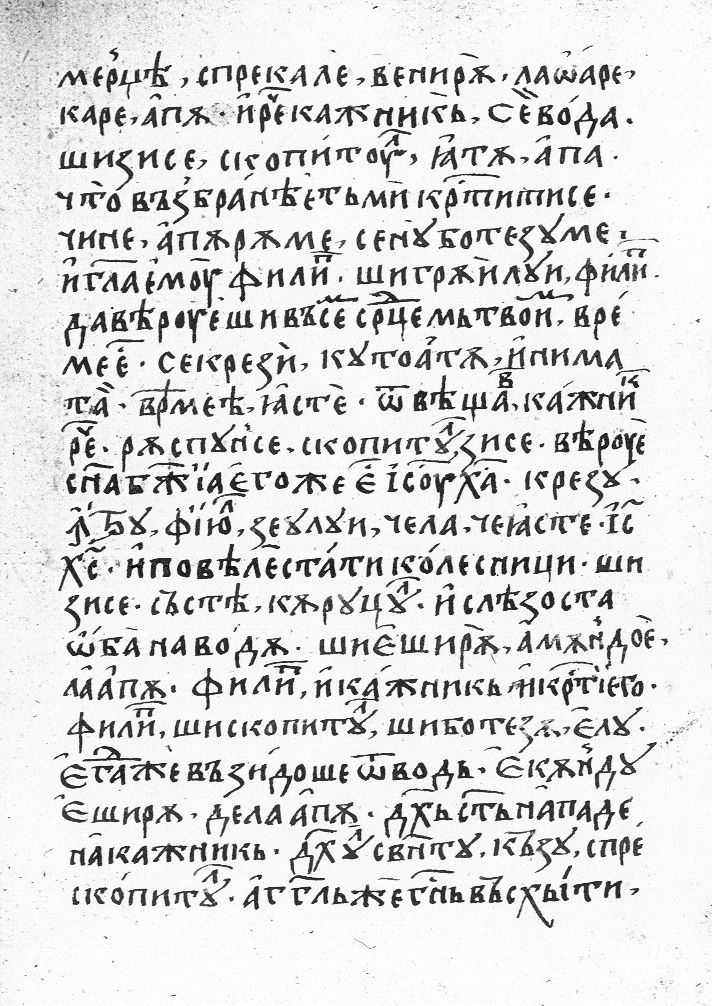 мер҆џѣ, спрекале, венирѫ, лаѡаре,
каре, апѫ· и҆ рⷱ҇е кажникь, се вода.
шизисе, скопитоуⷧ҇, ꙗтѫ, апа·
что възбранѣеть ми крⷭ҇титисе·
чине, апѫрѫме, сенꙋботезꙋме,
и҆ гл҃а емоу филиⷫ҇· шигрѫилꙋи, филиⷫ҇.
давѣроуеши въсеⷨ҇ срⷣ҇цемь твоиⷨ҇, вре
мее҆· секрези, кꙋтоатѫ, инима
та· врⷨ҇меѣ, ꙗсте· ѿвѣщаⷡ҇, кажниⷦ҇
рⷱ҇е· рѫспꙋнсе, скопитꙋⷧ҇, зисе· вѣроуе
сн҃а бж҃їа егоже е҆ іс҃оу х҃а· крезꙋ·
лꙋⷨ҇ б҃ꙋ, фїюⷧ҇, зеꙋлꙋи, чела, че ꙗсте· іс҃
хс҃· и҆ повѣлѣ стати колесници· ши
зисе· състѣ, кѫрꙋцꙋⷧ҇· и҆ слѣзоста
ѡба на водѫ· шиеширѫ, амѫндое,
ла апѫ· филиⷫ҇, и҆ кажникь, и҆ крⷭ҇ти его·
филиⷫ҇, шископитꙋⷧ҇, шиботезѫ, елꙋ·
егⷣ҇аже възидоше ѿ водь· екѫндꙋ
еширѫ· дела апѫ· дх҃ь ст҃ь нападе
на кажникь· дх҃ꙋⷧ҇ свⷩ҇тꙋ, къзꙋ, спре
скопитꙋⷧ҇· аггⷢ҇ль же гн҃ь въсхыти,